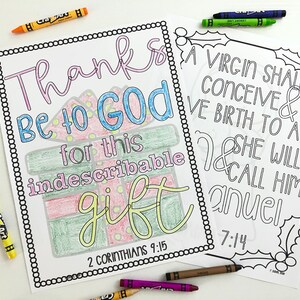 Thanks
Be to GOD
for this
indescribable
gift
2 CORINTHIANS 9:15
A VIRGIN SHA
CONCEIVE &
VE BIRTH TO A
SHE WILL
CALL HIM
anuel
7:14